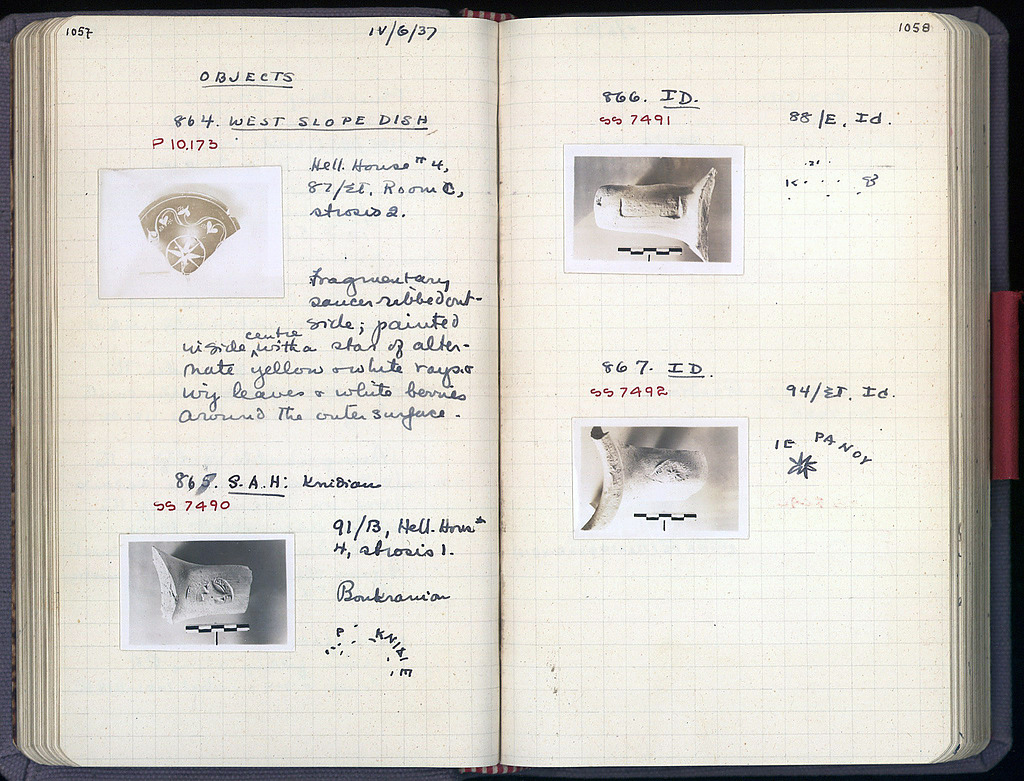 1057
IV/6/37
OBJECTS
864. WEST SLOPE DISH
P 10,173
Hell. House #4,
87/ΣΤ. Room C,
strosis 2.
Fragmentary
saucer ribbed out-
side; painted
centre
inside with a star of alter-
nate yellow & white rays &
ivy leaves & white berries
around the outer surface.
865. S.A.H: Knidian
SS 7490
91/B, Hell. House #
4, strosis 1.
Boukranian
P
ΚΝΙΔΙ
Ε
1058
866. ID.
SS 7491
88/E. Id.
Κ
867. ID.
SS 7492
94/ΣΤ. Id.
ΙΕ ΡΑΝΟΥ